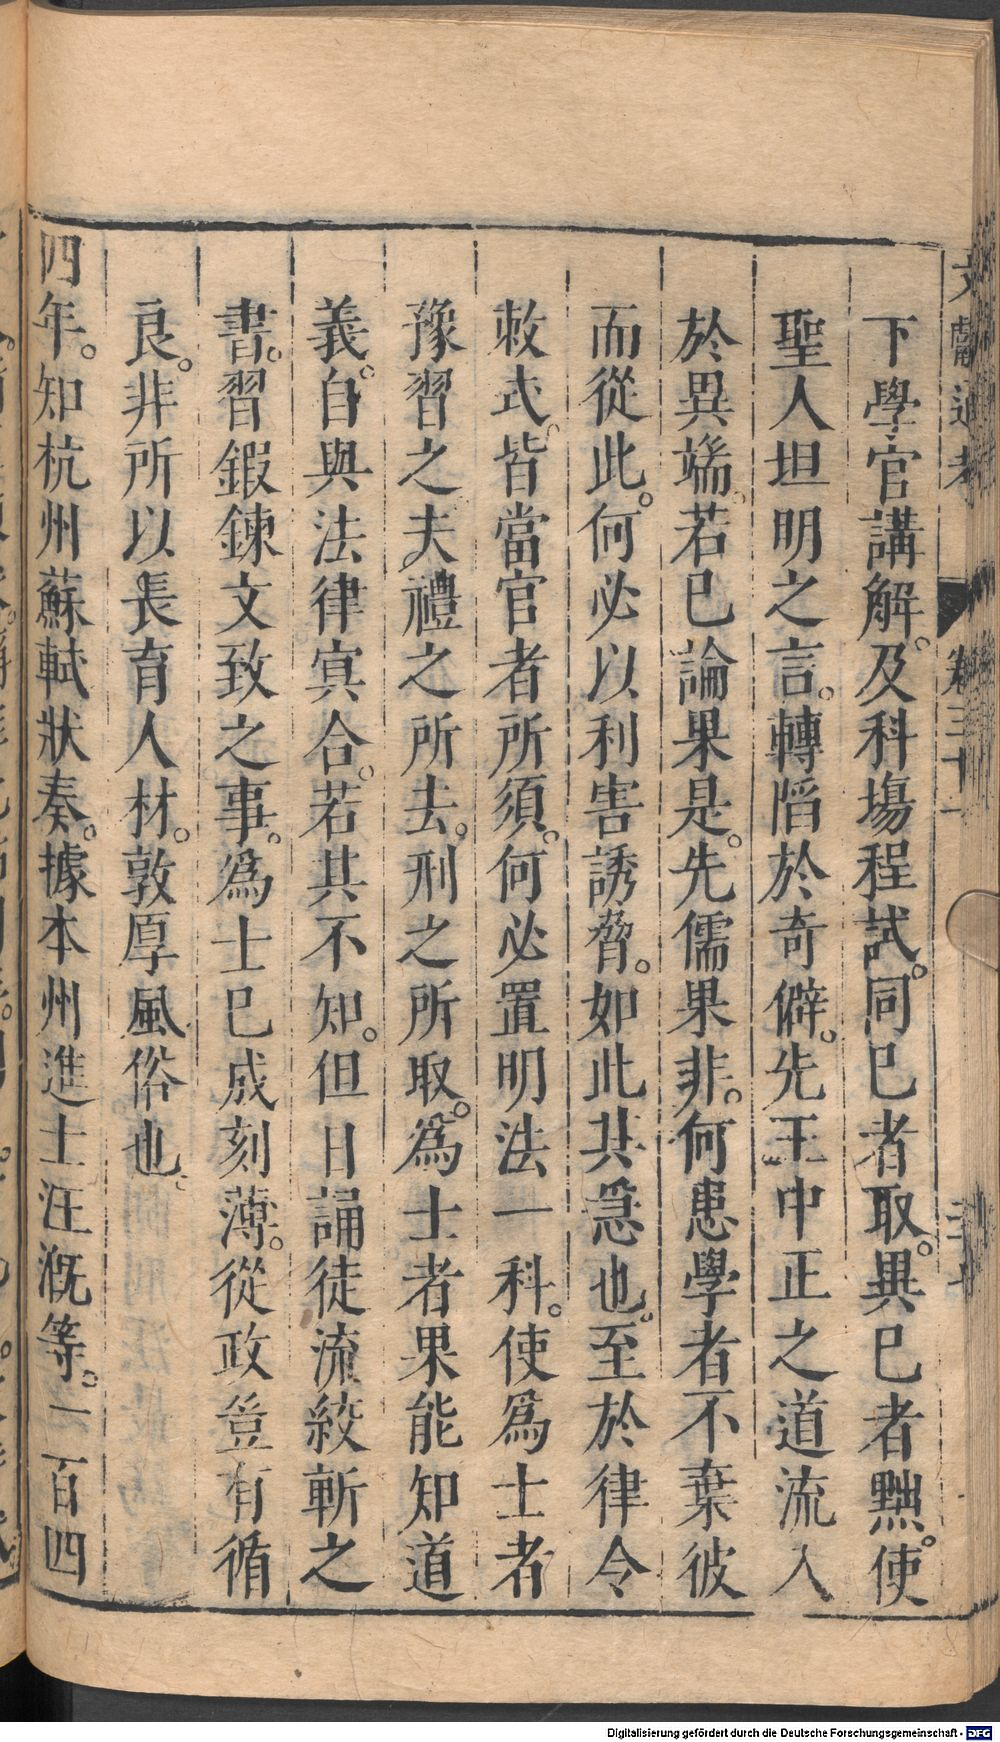 下學官講解。及科場程試。同已者取。異已者黜。使
聖人坦明之言。轉陷於奇僻。先王中正之道流入
於異端。若已論果是。先儒果非。何患學者不棄彼
而從此。何必以利害誘脅。如此其急也。至於律令
敕式。皆當官者所須。何必置明法一科。使爲士者
豫習之夫禮之所去。刑之所取。爲士者果能知道
義。自與法律冥合。若其不知。但日誦徒流絞斬之
書。習鍛鍊文致之事。爲士已成刻薄。從政豈有循
良。非所以長育人材。敦厚風俗也
四年。知杭州蘇軾狀奏。據本州進士汪溉等。一百四
卷三十一
Digitalisierung gefördert durch die Deutsche Forschungsgemeinschaft - DFG